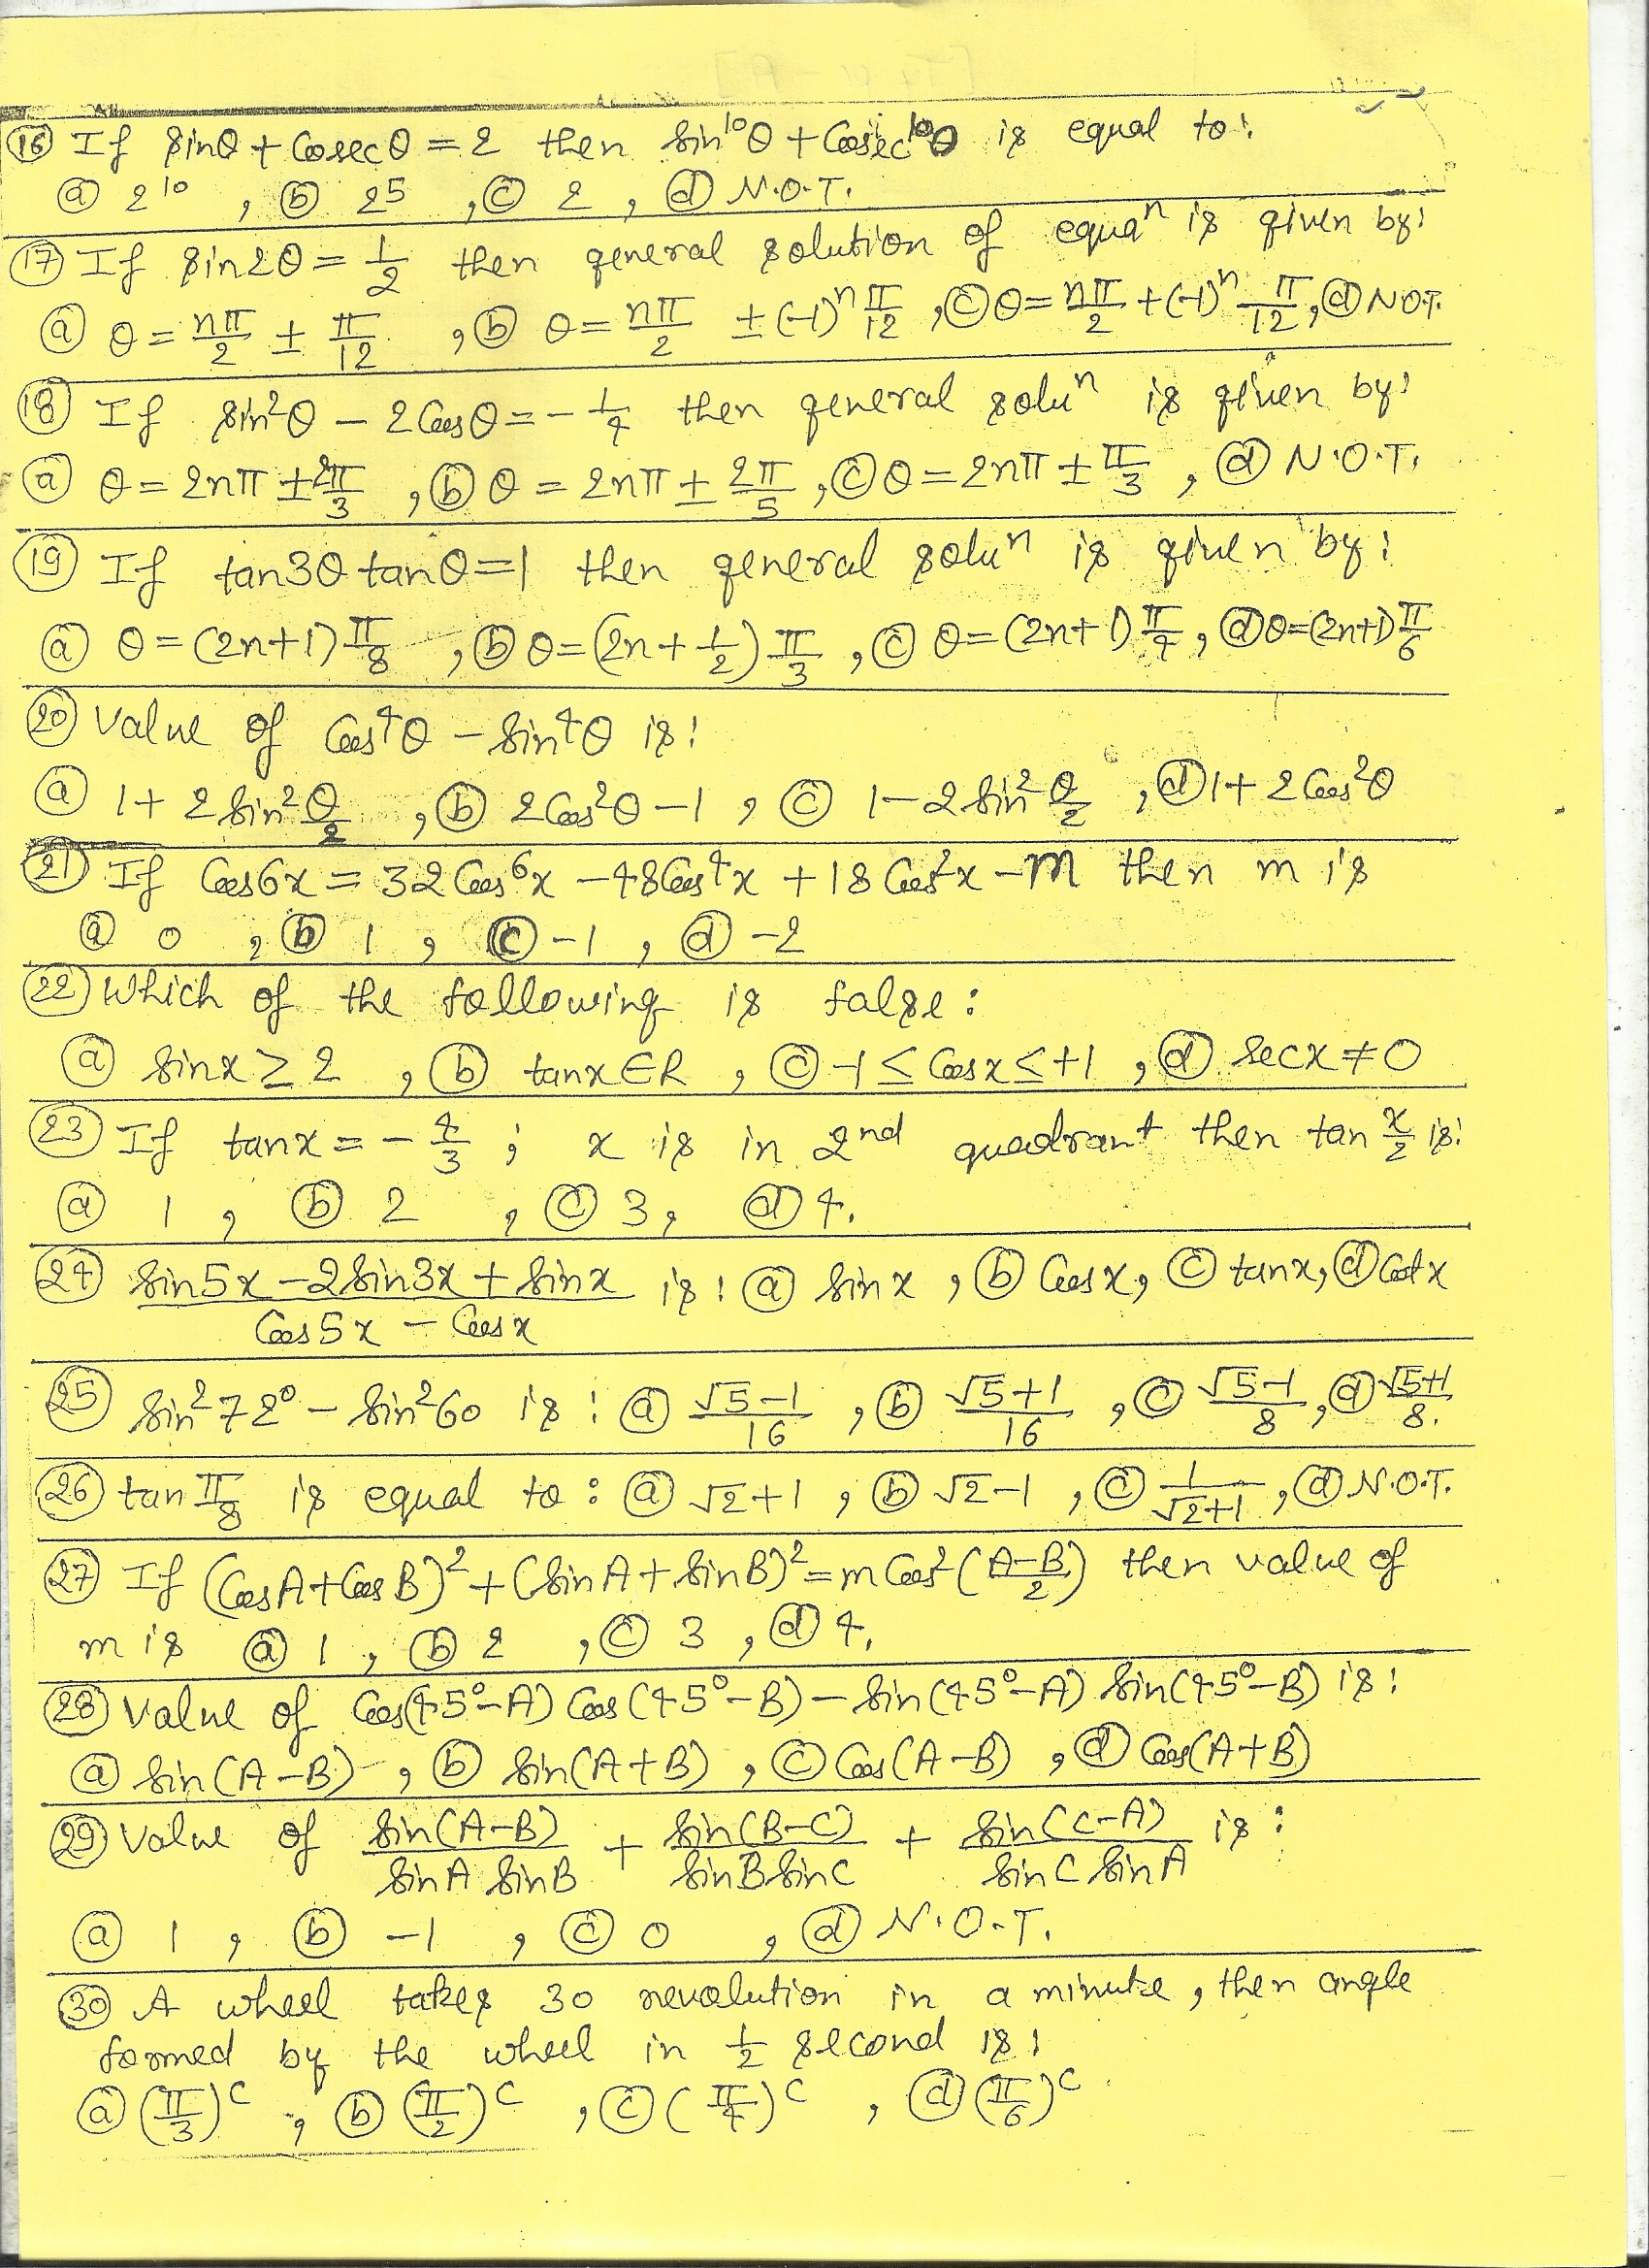 (16) If sinθ + Cosecθ = 2 then sin¹⁰θ + Cosec¹⁰θ is equal to:
(a) 2¹⁰ , (b) 2⁵ , (c) 2 , (d) N.O.T.
(17) If sin2θ = 1/2 then general solution of equaⁿ is given by:
(a) θ = nπ/2 ± π/12 , (b) θ = nπ/2 ± (-1)ⁿ π/12 , (c) θ = nπ/2 + (-1)ⁿ π/12 , (d) N.O.T.
(18) If sin²θ - 2Cosθ = -1/4 then general soluⁿ is given by:
(a) θ = 2nπ ± 2π/3 , (b) θ = 2nπ ± 2π/5 , (c) θ = 2nπ ± π/3 , (d) N.O.T.
(19) If tan3θ tanθ = 1 then general soluⁿ is given by:
(a) θ = (2n+1) π/8 , (b) θ = (2n + 1/2) π/3 , (c) θ = (2n+1) π/4 , (d) θ = (2n+1) π/6
(20) Value of Cos⁴θ - sin⁴θ is:
(a) 1 + 2 sin² θ/2 , (b) 2Cos²θ - 1 , (c) 1 - 2 sin² θ/2 , (d) 1 + 2 Cos²θ
(21) If Cos6x = 32 Cos⁶x - 48Cos⁴x + 18 Cos²x - m then m is
(a) 0 , (b) 1 , (c) -1 , (d) -2
(22) Which of the following is false:
(a) sinx ≥ 2 , (b) tanx ∈ R , (c) -1 ≤ Cosx ≤ +1 , (d) secx ≠ 0
(23) If tanx = -4/3 ; x is in 2nd quadrant then tan x/2 is:
(a) 1 , (b) 2 , (c) 3, (d) 4.
(24) (sin5x - 2sin3x + sinx)/(Cos5x - Cosx) is: (a) sinx , (b) Cosx, (c) tanx, (d) Cotx
(25) sin²72° - sin²60 is: (a) (√5-1)/16 , (b) (√5+1)/16 , (c) (√5-1)/8 , (d) (√5+1)/8.
(26) tan π/8 is equal to: (a) √2+1 , (b) √2-1 , (c) 1/(√2+1) , (d) N.O.T.
(27) If (CosA+CosB)² + (sinA+sinB)² = m Cos² ((A-B)/2) then value of
m is (a) 1 , (b) 2 , (c) 3 , (d) 4.
(28) Value of Cos(45°-A) Cos(45°-B) - sin(45°-A) sin(45°-B) is:
(a) sin(A-B) , (b) sin(A+B) , (c) Cos(A-B) , (d) Cos(A+B)
(29) Value of sin(A-B)/(sinA sinB) + sin(B-C)/(sinB sinC) + sin(C-A)/(sinC sinA) is:
(a) 1 , (b) -1 , (c) 0 , (d) N.O.T.
(30) A wheel takes 30 revolution in a minute, then angle
formed by the wheel in 1/2 second is:
(a) (π/3)ᶜ , (b) (π/2)ᶜ , (c) (π/4)ᶜ , (d) (π/6)ᶜ